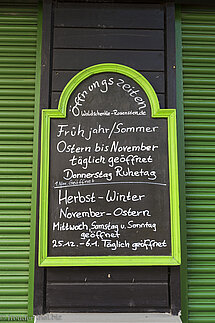 Öffnungszeiten
Frühjahr/Sommer
Ostern bis November
täglich geöffnet
Donnerstag Ruhetag
Herbst-Winter
November-Ostern
Mittwoch, Samstag u. Sonntag
geöffnet
25.12.-6.1. Täglich geöffnet